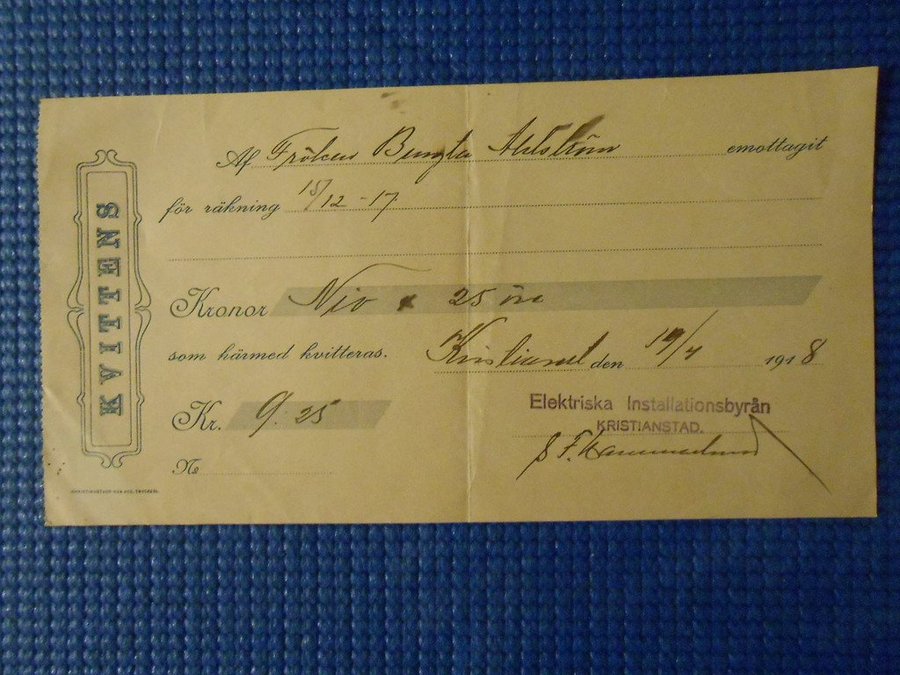 KVITTENS
Af Fröken Bengta Ahlström emottagit
för räkning 15/12 - 17
Kronor Nio & 25 öre
som härmed kvitteras. Kristianst den 19/4 1918
Kr. 9.25
Elektriska Installationsbyrån
KRISTIANSTAD.
No